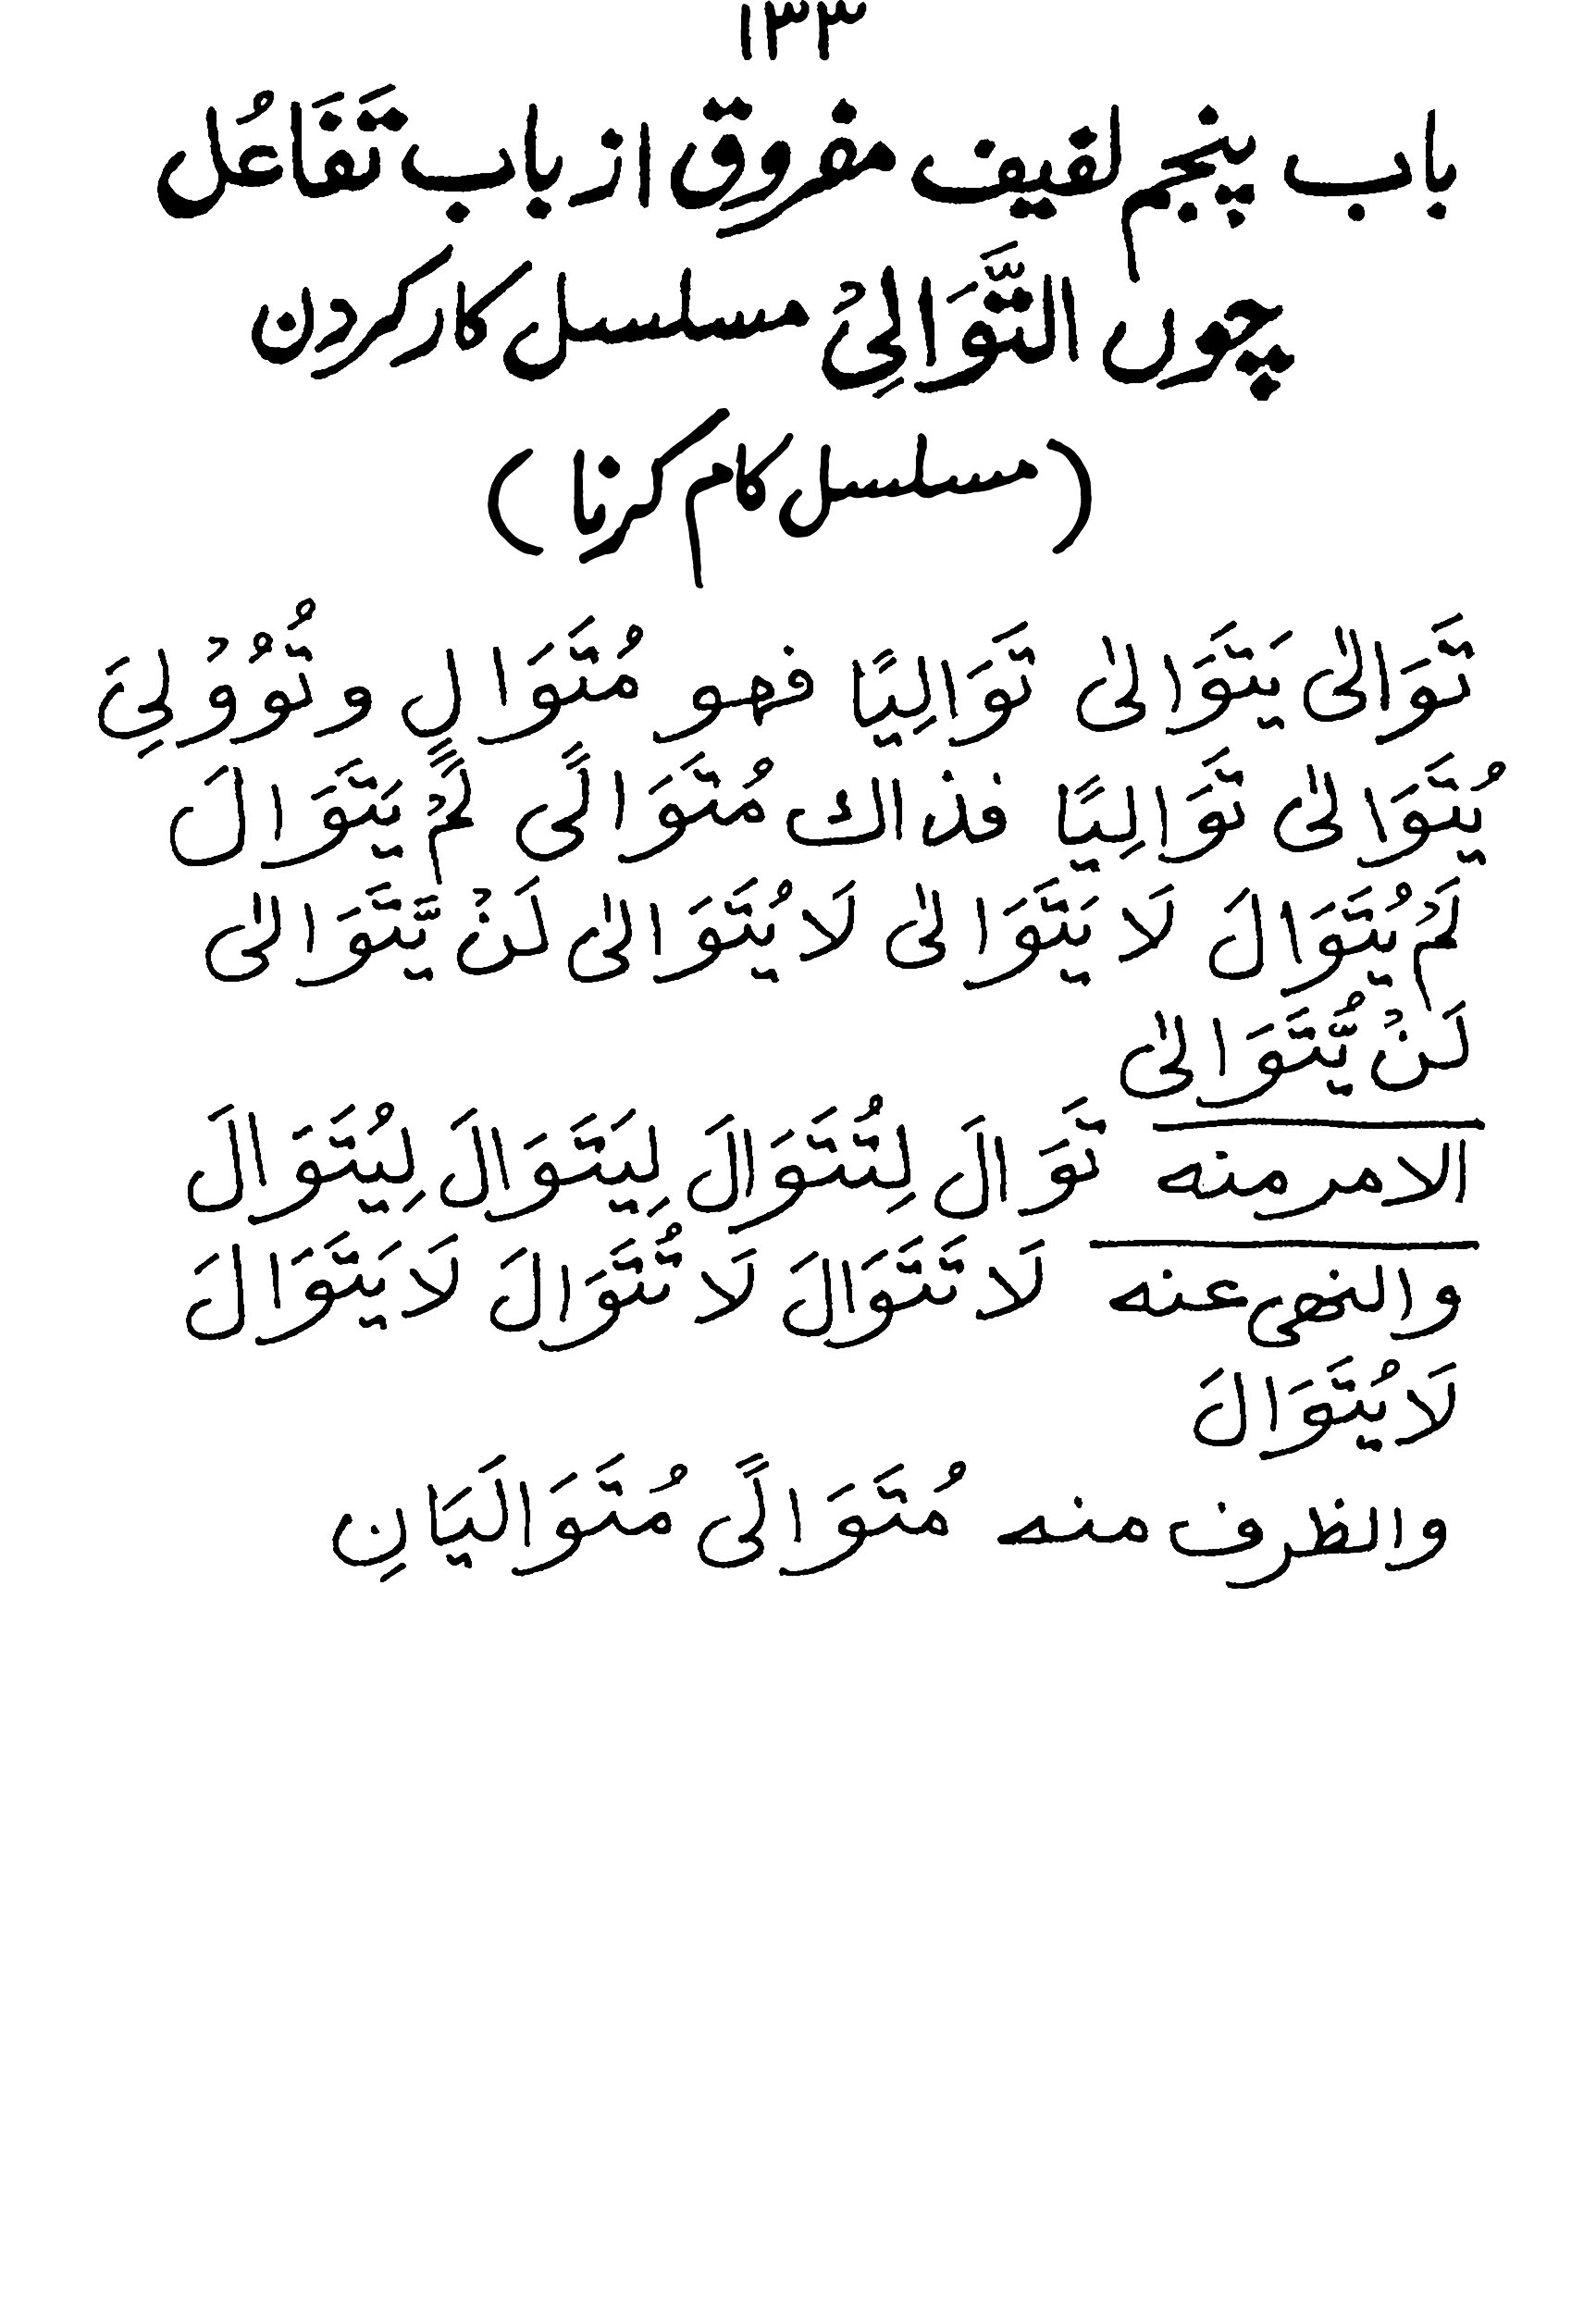 ۱۳۳
باب پنجم لفیف مفروق از باب تَفَاعُل
چوں التَّوَالِیْ مسلسل کار کردن
(مسلسل کام کرنا)
تَوَالٰی یَتَوَالٰی تَوَالِیًا فهو مُتَوَالٍ و تُوُوْلِیَ
یُتَوَالٰی تَوَالِیًا فذاك مُتَوَالًی لَمْ یَتَوَالَ
لَمْ یُتَوَالَ لَا یَتَوَالٰی لَا یُتَوَالٰی لَنْ یَّتَوَالٰی
لَنْ یُّتَوَالٰی
الامر منه تَوَالَ لِتُتَوَالَ لِیَتَوَالَ لِیُتَوَالَ
والنهی عنه لَا تَتَوَالَ لَا تُتَوَالَ لَا یَتَوَالَ
لَا یُتَوَالَ
والظرف منه مُتَوَالًی مُتَوَالَیَانِ